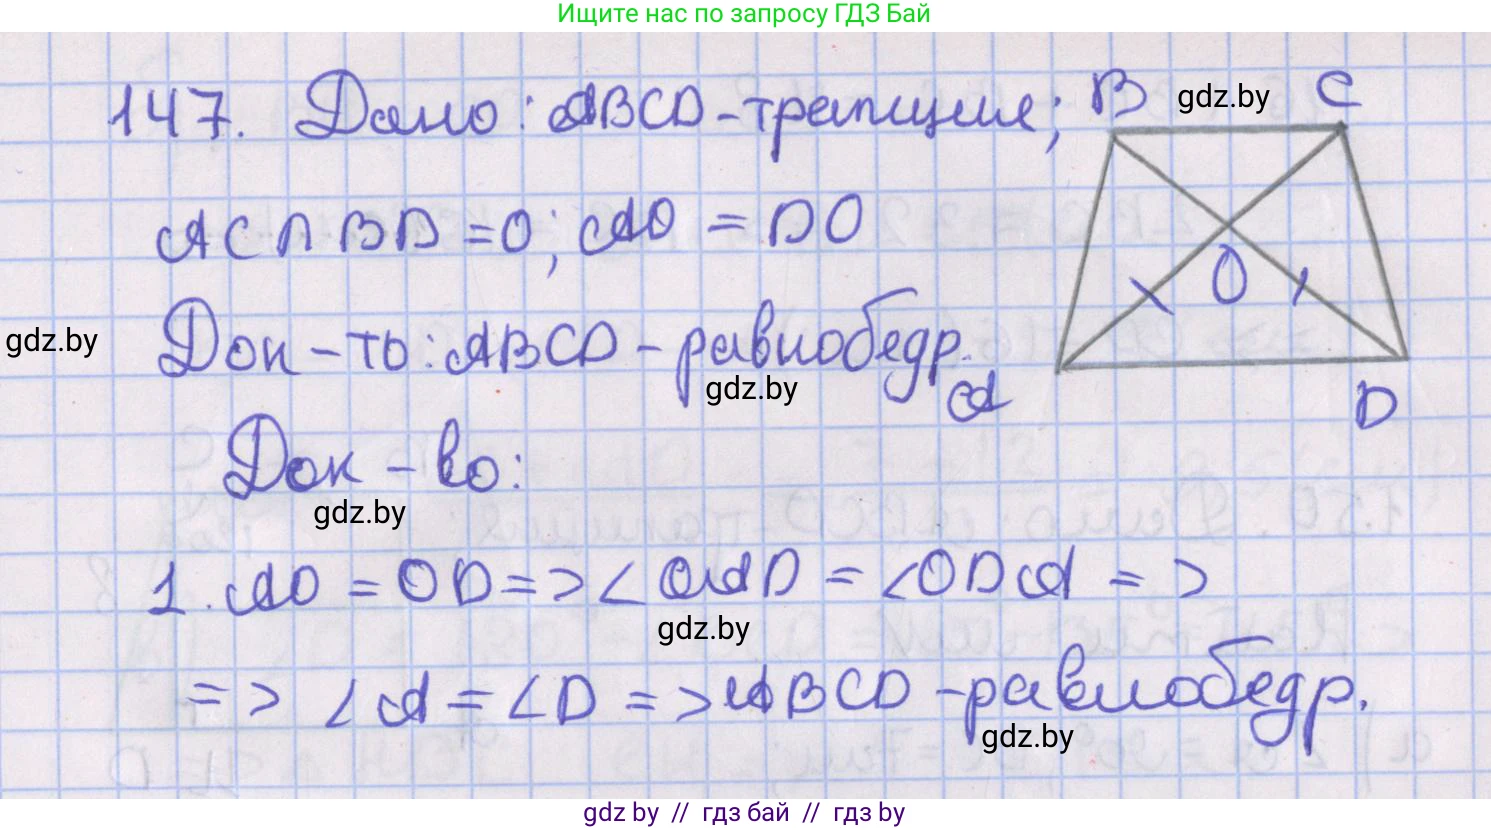 Ищите нас по запросу ГДЗ Бай
147. Дано: ABCD-трапеция; B gdz.by C
AC∩BD=O; AO = DO
O
gdz.by Док-ть: ABCD - равнобедр.
gdz.by
A D
Док-во:
gdz.by
1. AO = OD => ∠OAD = ∠ODA =>
gdz.by
=> ∠A = ∠D => ABCD -равнобедр.
gdz.by
gdz by // гдз бай // гдз by